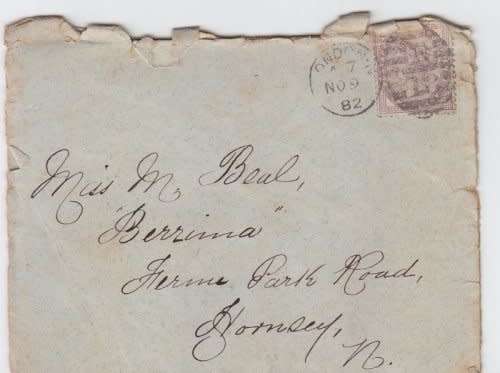 LONDON
7
NO 9
82
Miss M. Beal,
"Berrima"
Ferme Park Road,
Hornsey,
N.